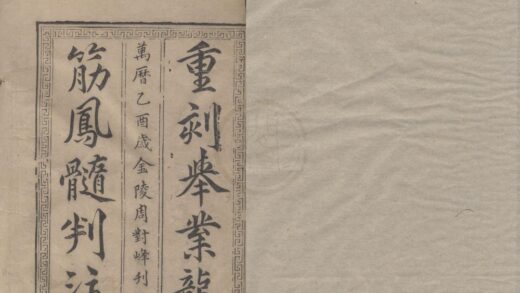 重刻舉業龍
萬曆乙酉歲金陵周對峰刊
筋鳳髓判注